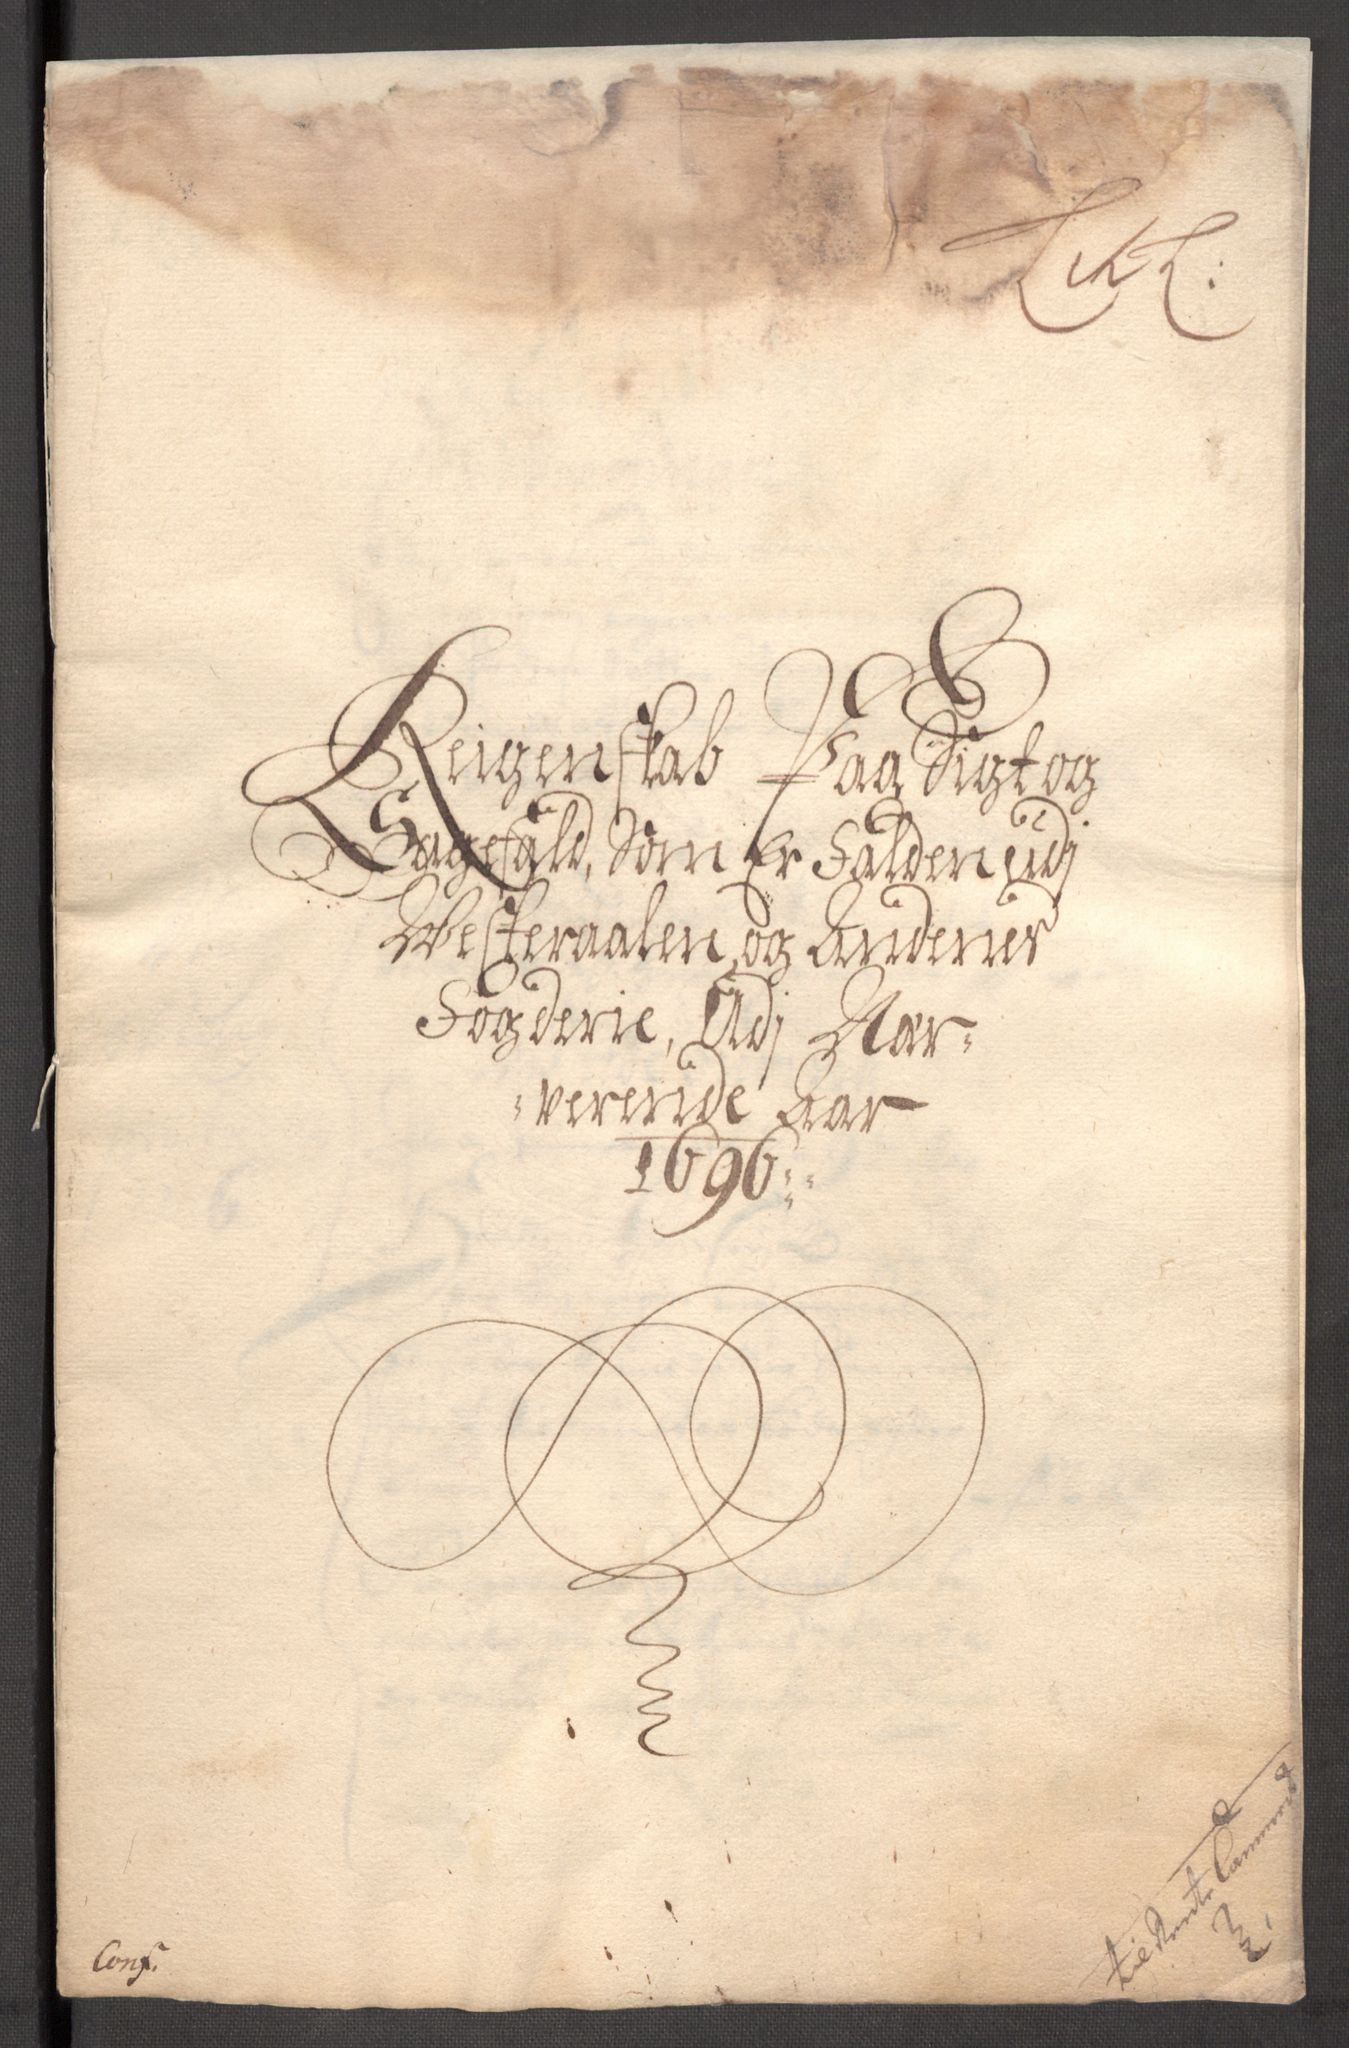 Reigenskab Paa Sigt og
Sagefald, Som Er Falden udj
Westeraalen og Andenes
Fogderie, Udj Nær-
-verende Aar
1696
til Rente Cammeret
Conf.